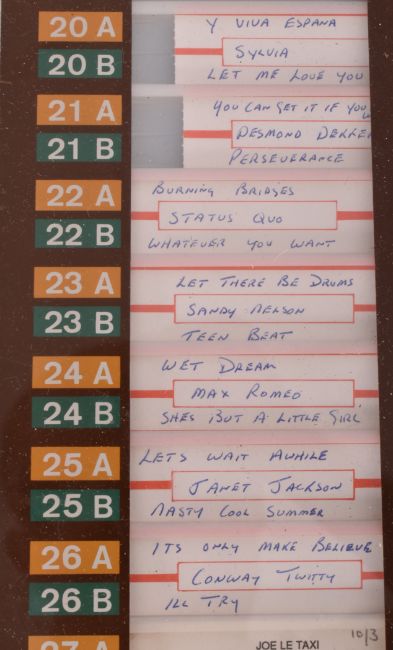 20 A
Y VIVA ESPANA
SYLVIA
20 B
LET ME LOVE YOU
21 A
YOU CAN GET IT IF YOU
DESMOND DEKKE
21 B
PERSEVERANCE
22 A
BURNING BRIDGES
STATUS QUO
22 B
WHATEVER YOU WANT
23 A
LET THERE BE DRUMS
SANDY NELSON
23 B
TEEN BEAT
24 A
WET DREAM
MAX ROMEO
24 B
SHES BUT A LITTLE GIRL
25 A
LETS WAIT AWHILE
JANET JACKSON
25 B
NASTY COOL SUMMER
26 A
ITS ONLY MAKE BELIEVE
CONWAY TWITTY
26 B
ILL TRY
27 A
JOE LE TAXI
10/3